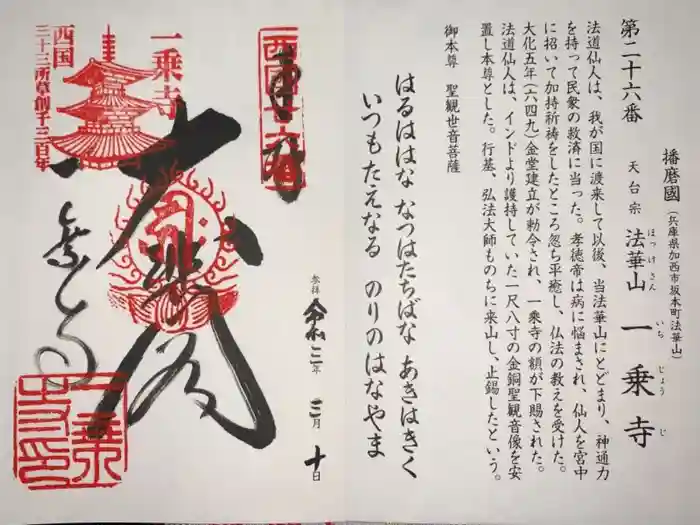 第二十六番
播磨國(兵庫県加西市坂本町法華山)
天台宗 法華山 一乗寺
ほっけさん いちじょうじ
法道仙人は、我が国に渡来して以後、当法華山にとどまり、神通力
を持って民衆の救済に当った。孝徳帝は病に悩まされ、仙人を宮中
に招いて加持祈祷をしたところ忽ち平癒し、仏法の教えを受けた。
大化五年(六四九)金堂建立が勅令され、一乗寺の額が下賜された。
法道仙人は、インドより護持していた一尺八寸の金銅聖観音像を安
置し本尊とした。行基、弘法大師ものちに来山し、止錫したという。
御本尊 聖観世音菩薩
はるははな なつはたちばな あきはきく
いつもたえなる のりのはなやま
奉拝
参拝 令和二年 三月 十日
大悲閣
一乗寺
一乗寺
西国
三十三所草創千三百年
一乗寺印